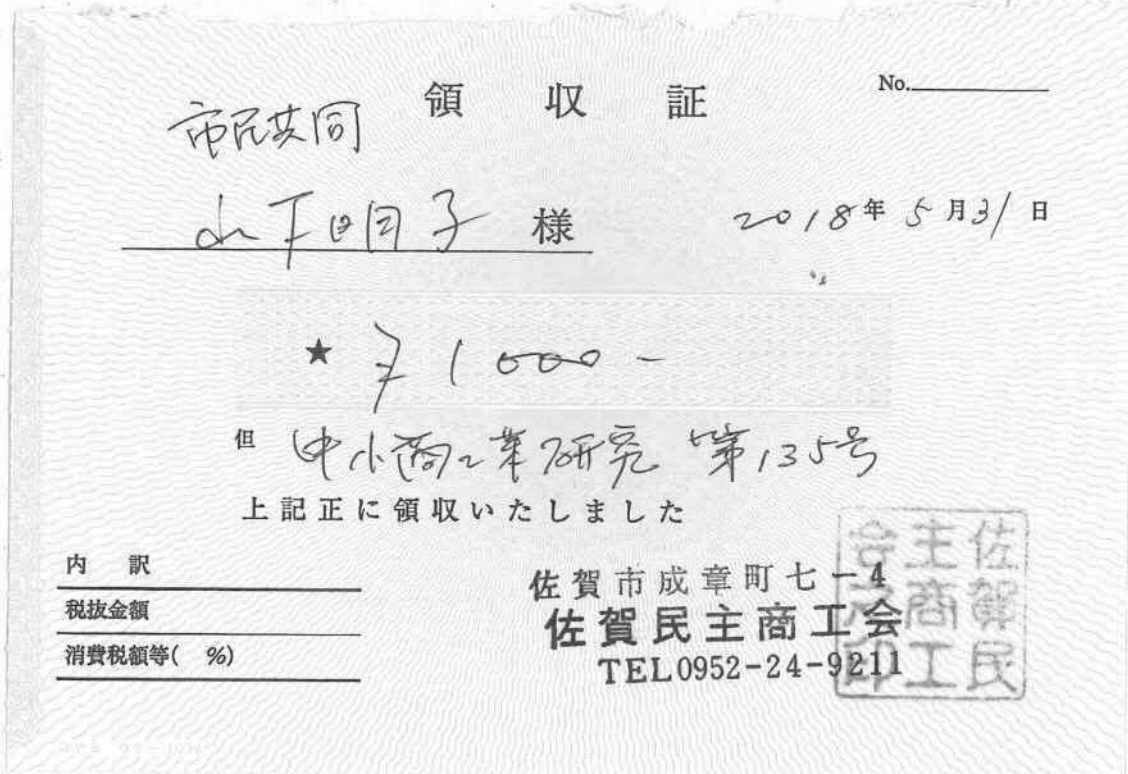 領収証
No.
市民共同
山下明子 様
2018年5月31日
★ ¥1000-
但 中小商工業研究 第135号
上記正に領収いたしました
内訳
税抜金額
消費税額等( %)
佐賀市成章町七-4
佐賀民主商工会
TEL0952-24-9211
佐賀民主商工会之印